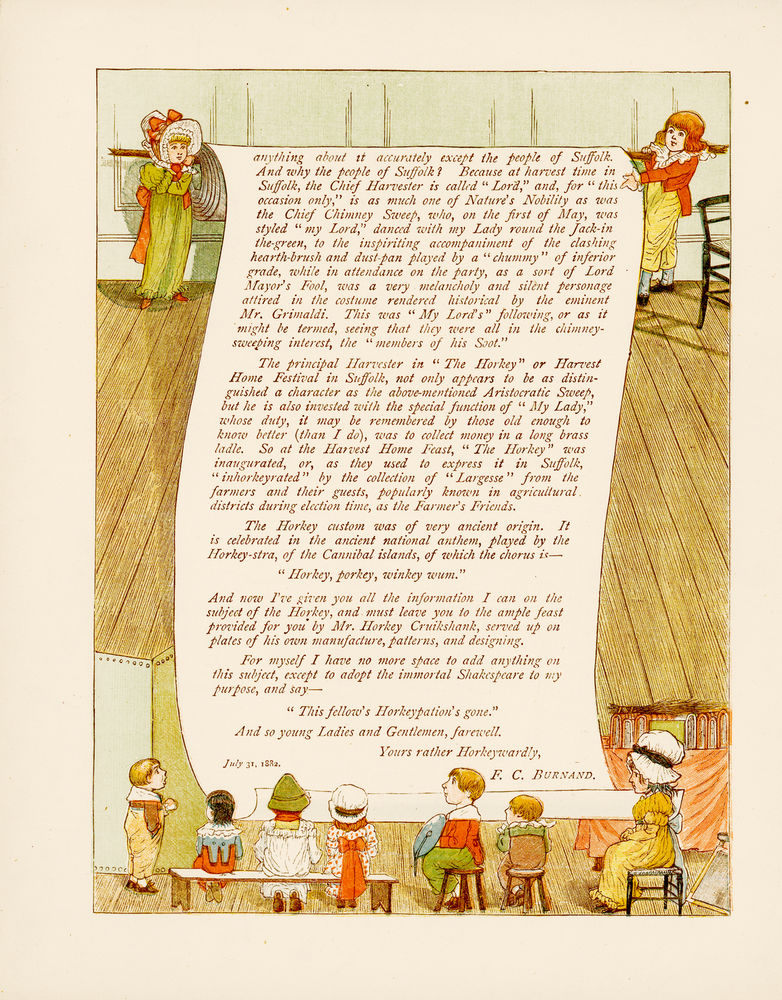 anything about it accurately except the people of Suffolk.
And why the people of Suffolk? Because at harvest time in
Suffolk, the Chief Harvester is called "Lord," and, for "this
occasion only," is as much one of Nature's Nobility as was
the Chief Chimney Sweep, who, on the first of May, was
styled "my Lord," danced with my Lady round the Jack-in
the-green, to the inspiriting accompaniment of the clashing
hearth-brush and dust-pan played by a "chummy" of inferior
grade, while in attendance on the party, as a sort of Lord
Mayor's Fool, was a very melancholy and silent personage
attired in the costume rendered historical by the eminent
Mr. Grimaldi. This was "My Lord's" following, or as it
might be termed, seeing that they were all in the chimney-
sweeping interest, the "members of his Soot."
The principal Harvester in "The Horkey" or Harvest
Home Festival in Suffolk, not only appears to be as distin-
guished a character as the above-mentioned Aristocratic Sweep,
but he is also invested with the special function of "My Lady,"
whose duty, it may be remembered by those old enough to
know better (than I do), was to collect money in a long brass
ladle. So at the Harvest Home Feast, "The Horkey" was
inaugurated, or, as they used to express it in Suffolk,
"inhorkeyrated" by the collection of "Largesse" from the
farmers and their guests, popularly known in agricultural
districts during election time, as the Farmer's Friends.
The Horkey custom was of very ancient origin. It
is celebrated in the ancient national anthem, played by the
Horkey-stra, of the Cannibal islands, of which the chorus is—
"Horkey, porkey, winkey wum."
And now I've given you all the information I can on the
subject of the Horkey, and must leave you to the ample feast
provided for you by Mr. Horkey Cruikshank, served up on
plates of his own manufacture, patterns, and designing.
For myself I have no more space to add anything on
this subject, except to adopt the immortal Shakespeare to my
purpose, and say—
"This fellow's Horkeypation's gone."
And so young Ladies and Gentlemen, farewell.
Yours rather Horkeywardly,
July 31, 1882.
F. C. BURNAND.